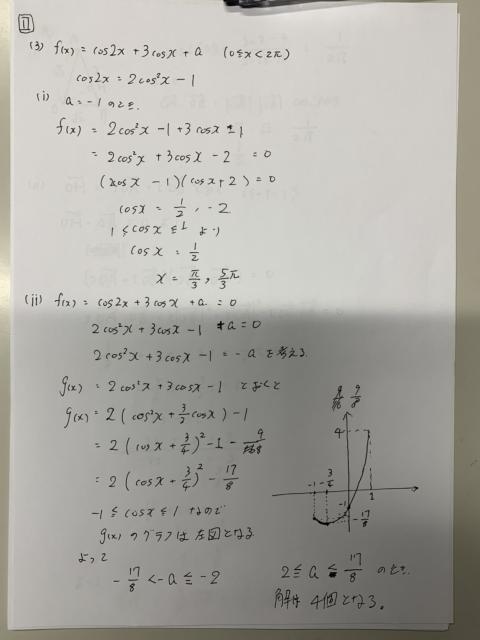 1
(3) f(x) = cos2x + 3cosx + a (0≦x<2π)
cos2x = 2cos²x - 1
(i) a = -1 のとき.
f(x) = 2cos²x - 1 + 3cosx - 1
= 2cos²x + 3cosx - 2 = 0
(2cosx - 1)(cosx + 2) = 0
cosx = 1/2, -2
1 ≦ cosx ≦ 1 より
cosx = 1/2
x = π/3, 5π/3
(ii) f(x) = cos2x + 3cosx + a = 0
2cos²x + 3cosx - 1 + a = 0
2cos²x + 3cosx - 1 = -a を考える.
g(x) = 2cos²x + 3cosx - 1 とおくと
g(x) = 2(cos²x + 3/2 cosx) - 1
= 2(cosx + 3/4)² - 1 - 9/8
= 2(cosx + 3/4)² - 17/8
-1 ≦ cosx ≦ 1 なので
g(x) のグラフは左図となる
よって
-17/8 < -a ≦ -2
9/8
4
-1
3/4
1
-1
-17/8
2 ≦ a < 17/8 のとき.
解は 4個となる。